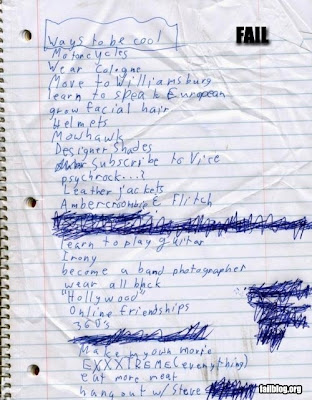 Ways to be cool
FAIL
Motorcycles
Wear Cologne
Move to Williamsburg
learn to speak European
grow facial hair
Helmets
Mowhawk
Designer Shades
Subscribe to Vice
psychrock...?
Leather jackets
Ambercroombie & Flitch
learn to play guitar
Irony
become a band photographer
wear all black
"Hollywood"
Online friendships
360's
Make my own movie
EXXXTREME (everything)
eat more meat
hang out w/ Steve
failblog.org